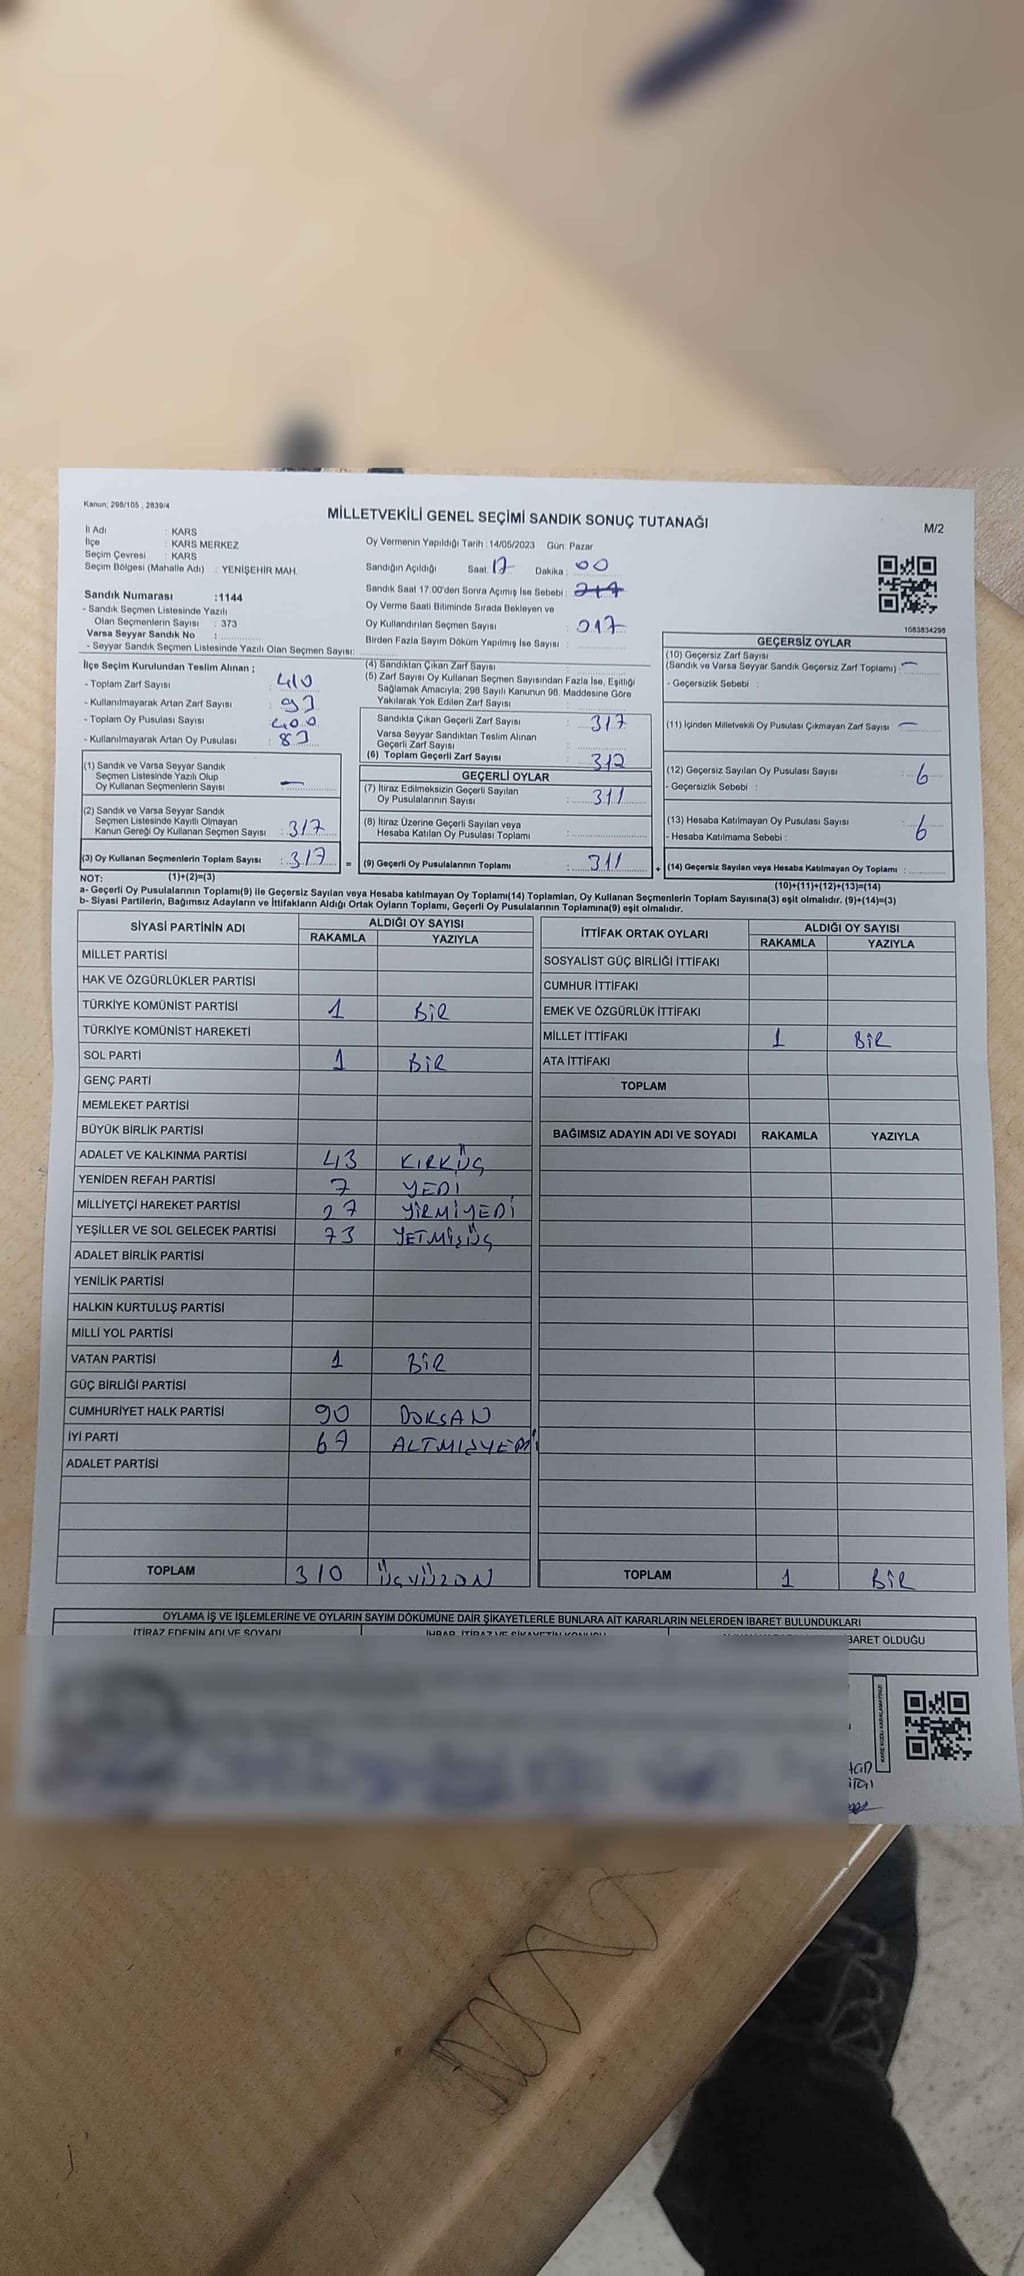 Kanun; 298/105 , 2839/4
MİLLETVEKİLİ GENEL SEÇİMİ SANDIK SONUÇ TUTANAĞI
M/2
İl Adı : KARS
İlçe : KARS MERKEZ
Seçim Çevresi : KARS
Seçim Bölgesi (Mahalle Adı) : YENİŞEHİR MAH.
Sandık Numarası :1144
- Sandık Seçmen Listesinde Yazılı
Olan Seçmenlerin Sayısı : 373
Varsa Seyyar Sandık No :
- Seyyar Sandık Seçmen Listesinde Yazılı Olan Seçmen Sayısı:
Oy Vermenin Yapıldığı Tarih :14/05/2023 Gün: Pazar
Sandığın Açıldığı Saat: 17 Dakika : 00
Sandık Saat 17:00'den Sonra Açımış İse Sebebi :
Oy Verme Saati Bitiminde Sırada Bekleyen ve
Oy Kullandırılan Seçmen Sayısı : 017
Birden Fazla Sayım Döküm Yapılmış İse Sayısı :
1083834298
İlçe Seçim Kurulundan Teslim Alınan ;
- Toplam Zarf Sayısı : 410
- Kullanılmayarak Artan Zarf Sayısı : 93
- Toplam Oy Pusulası Sayısı : 400
- Kullanılmayarak Artan Oy Pusulası : 83
(1) Sandık ve Varsa Seyyar Sandık
Seçmen Listesinde Yazılı Olup
Oy Kullanan Seçmenlerin Sayısı : —
(2) Sandık ve Varsa Seyyar Sandık
Seçmen Listesinde Kayıtlı Olmayan
Kanun Gereği Oy Kullanan Seçmen Sayısı : 317
(3) Oy Kullanan Seçmenlerin Toplam Sayısı : 317 =
(4) Sandıktan Çıkan Zarf Sayısı :
(5) Zarf Sayısı Oy Kullanan Seçmen Sayısından Fazla İse, Eşitliği
Sağlamak Amacıyla, 298 Sayılı Kanunun 98. Maddesine Göre
Yakılarak Yok Edilen Zarf Sayısı :
Sandıkta Çıkan Geçerli Zarf Sayısı : 317
Varsa Seyyar Sandıktan Teslim Alınan
Geçerli Zarf Sayısı :
(6) Toplam Geçerli Zarf Sayısı : 312
GEÇERLİ OYLAR
(7) İtiraz Edilmeksizin Geçerli Sayılan
Oy Pusulalarının Sayısı : 311
(8) İtiraz Üzerine Geçerli Sayılan veya
Hesaba Katılan Oy Pusulası Toplamı :
(9) Geçerli Oy Pusulalarının Toplamı : 311 +
GEÇERSİZ OYLAR
(10) Geçersiz Zarf Sayısı
(Sandık ve Varsa Seyyar Sandık Geçersiz Zarf Toplamı) : —
- Geçersizlik Sebebi :
(11) İçinden Milletvekili Oy Pusulası Çıkmayan Zarf Sayısı : —
(12) Geçersiz Sayılan Oy Pusulası Sayısı : 6
- Geçersizlik Sebebi :
(13) Hesaba Katılmayan Oy Pusulası Sayısı : 6
- Hesaba Katılmama Sebebi :
(14) Geçersiz Sayılan veya Hesaba Katılmayan Oy Toplamı :
NOT: (1)+(2)=(3)
(10)+(11)+(12)+(13)=(14)
a- Geçerli Oy Pusulalarının Toplamı(9) ile Geçersiz Sayılan veya Hesaba katılmayan Oy Toplamı(14) Toplamları, Oy Kullanan Seçmenlerin Toplam Sayısına(3) eşit olmalıdır. (9)+(14)=(3)
b- Siyasi Partilerin, Bağımsız Adayların ve İttifakların Aldığı Ortak Oyların Toplamı, Geçerli Oy Pusulalarının Toplamına(9) eşit olmalıdır.
SİYASİ PARTİNİN ADI ALDIĞI OY SAYISI
RAKAMLA YAZIYLA
MİLLET PARTİSİ
HAK VE ÖZGÜRLÜKLER PARTİSİ
TÜRKİYE KOMÜNİST PARTİSİ 1 BİR
TÜRKİYE KOMÜNİST HAREKETİ
SOL PARTİ 1 BİR
GENÇ PARTİ
MEMLEKET PARTİSİ
BÜYÜK BİRLİK PARTİSİ
ADALET VE KALKINMA PARTİSİ 43 KIRKÜÇ
YENİDEN REFAH PARTİSİ 7 YEDİ
MİLLİYETÇİ HAREKET PARTİSİ 27 YİRMİYEDİ
YEŞİLLER VE SOL GELECEK PARTİSİ 73 YETMİŞÜÇ
ADALET BİRLİK PARTİSİ
YENİLİK PARTİSİ
HALKIN KURTULUŞ PARTİSİ
MİLLİ YOL PARTİSİ
VATAN PARTİSİ 1 BİR
GÜÇ BİRLİĞİ PARTİSİ
CUMHURİYET HALK PARTİSİ 90 DOKSAN
İYİ PARTİ 67 ALTMIŞYEDİ
ADALET PARTİSİ
TOPLAM 310 ÜÇYÜZON
İTTİFAK ORTAK OYLARI ALDIĞI OY SAYISI
RAKAMLA YAZIYLA
SOSYALİST GÜÇ BİRLİĞİ İTTİFAKI
CUMHUR İTTİFAKI
EMEK VE ÖZGÜRLÜK İTTİFAKI
MİLLET İTTİFAKI 1 BİR
ATA İTTİFAKI
TOPLAM
BAĞIMSIZ ADAYIN ADI VE SOYADI RAKAMLA YAZIYLA
TOPLAM 1 BİR
OYLAMA İŞ VE İŞLEMLERİNE VE OYLARIN SAYIM DÖKÜMÜNE DAİR ŞİKAYETLERLE BUNLARA AİT KARARLARIN NELERDEN İBARET BULUNDUKLARI
İTİRAZ EDENİN ADI VE SOYADI İHBAR, İTİRAZ VE ŞİKAYETİN KONUSU BARET OLDUĞU